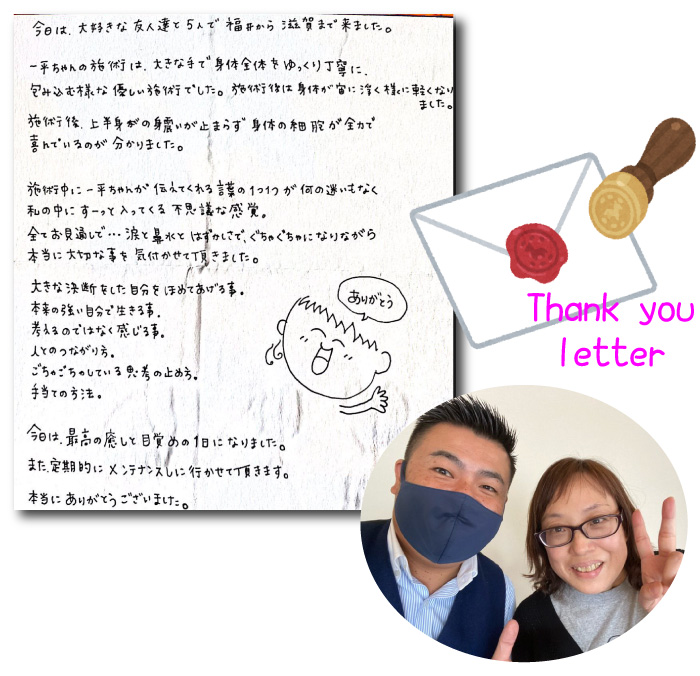 今日は、大好きな友人達と5人で福井から滋賀まで来ました。
一平ちゃんの施術は、大きな手で身体全体をゆっくり丁寧に、
包み込む様な優しい施術でした。施術後は身体が宙に浮く様に軽くなり
ました。
施術後、上半身がの身震いが止まらず身体の細胞が全力で
喜んでいるのが分かりました。
施術中に一平ちゃんが伝えてくれる言葉の1つ1つが何の迷いもなく
私の中にすーっと入ってくる不思議な感覚。
全てお見通しで…涙と鼻水とはずかしさで、ぐちゃぐちゃになりながら
本当に大切な事を気付かせて頂きました。
大きな決断をした自分をほめてあげる事。
本来の強い自分で生きる事。
考えるのではなく感じる事。
人とのつながり方。
ごちゃごちゃしている思考の止め方。
手当ての方法。
ありがとう
今日は、最高の癒しと目覚めの1日になりました。
また定期的にメンテナンスしに行かせて頂きます。
本当にありがとうございました。
Thank you
letter